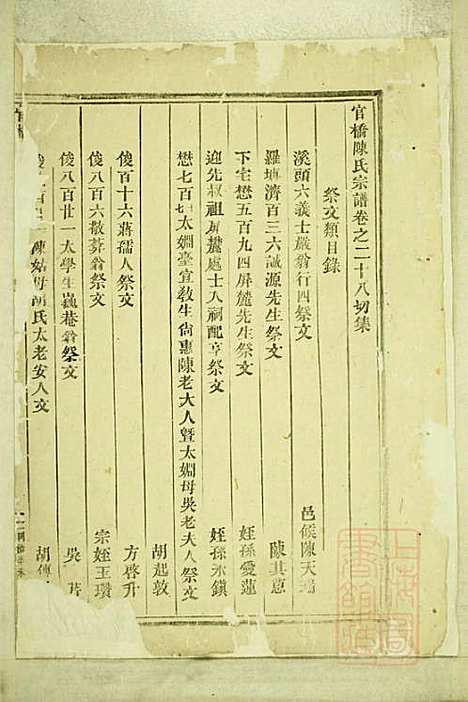 官橋陳氏宗譜卷之二十八切集
祭文類目錄
溪頭六義士嚴翁行四祭文 邑候陳天瑞
羅塘濟百三六誠源先生祭文 陳其蒽
下宅懋五百九四屏麓先生祭文 姪孫愛蓮
迎先叔祖屏麓處士入祠配享祭文 姪孫氷鎭
懋七百 太姻臺宜敎生尙惠陳老大人暨太姻母吳老夫人祭文
胡起敦
俊百十六蔣孺人祭文 方啓升
俊八百六敬葬翁祭文 宗姪玉瓚
俊八百廿一大學生 菴翁祭文 吳
陳姑母胡氏太老安人文 胡